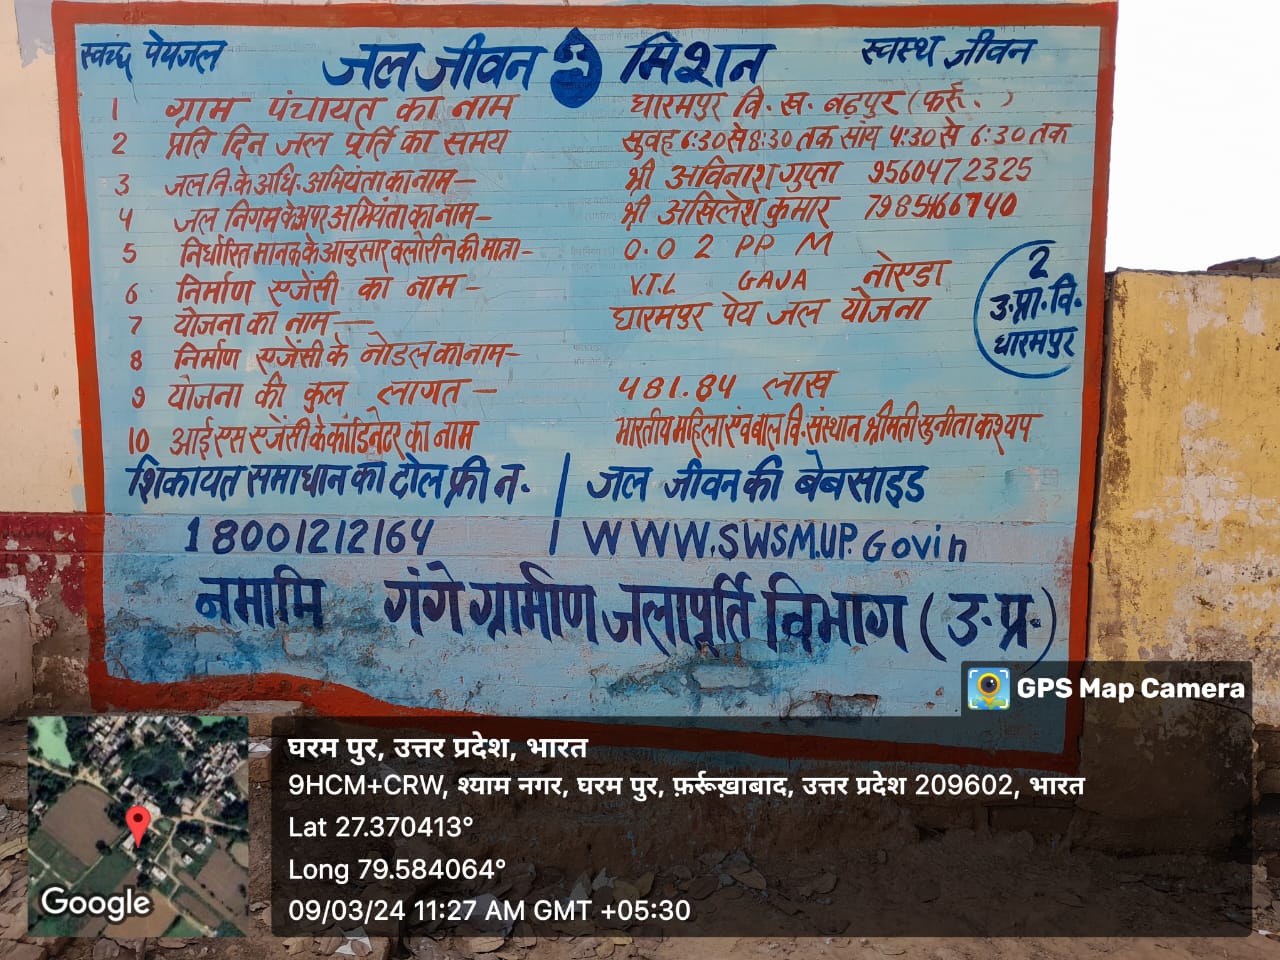 स्वच्छ पेयजल जल जीवन मिशन स्वस्थ जीवन
1 ग्राम पंचायत का नाम धारमपुर वि. ख. बढ़पुर (फर्रु. )
2 प्रति दिन जल पूर्ति का समय सुवह 6:30 से 8:30 तक सांय 4:30 से 6:30 तक
3 जल नि. के अधि. अभियंता का नाम — श्री अविनाश गुप्ता 9560472325
4 जल निगम के अपर अभियंता का नाम — श्री अखिलेश कुमार 7985466740
5 निर्धारित मानक के आनुसार क्लोरीन की मात्रा — 0.02 PPM
6 निर्माण एजेंसी का नाम — V.T.L GAJA नोएडा
7 योजना का नाम — धारमपुर पेय जल योजना
8 निर्माण एजेंसी के नोडल का नाम —
9 योजना की कुल लागत — 481.84 लाख
10 आई एस एजेंसी के कोर्डिनेटर का नाम भारतीय महिला एंव बाल वि. संस्थान श्रीमती सुनीता कश्यप
2
उ. प्रा. वि.
धारमपुर
शिकायत समाधान का टोल फ्री न. | जल जीवन की बेबसाइड
18001212164 | WWW.SWSM.UP.Govin
नमामि गंगे ग्रामीण जलापूर्ति विभाग (उ. प्र.)
GPS Map Camera
घरम पुर, उत्तर प्रदेश, भारत
9HCM+CRW, श्याम नगर, घरम पुर, फ़र्रूख़ाबाद, उत्तर प्रदेश 209602, भारत
Lat 27.370413°
Long 79.584064°
09/03/24 11:27 AM GMT +05:30
Google